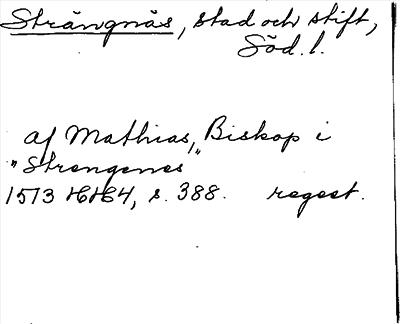 Strängnäs, stad och stift,
Söd. l.
af Mathias, Biskop i
"Strengenes"
1513 HH4, s. 388. regest.